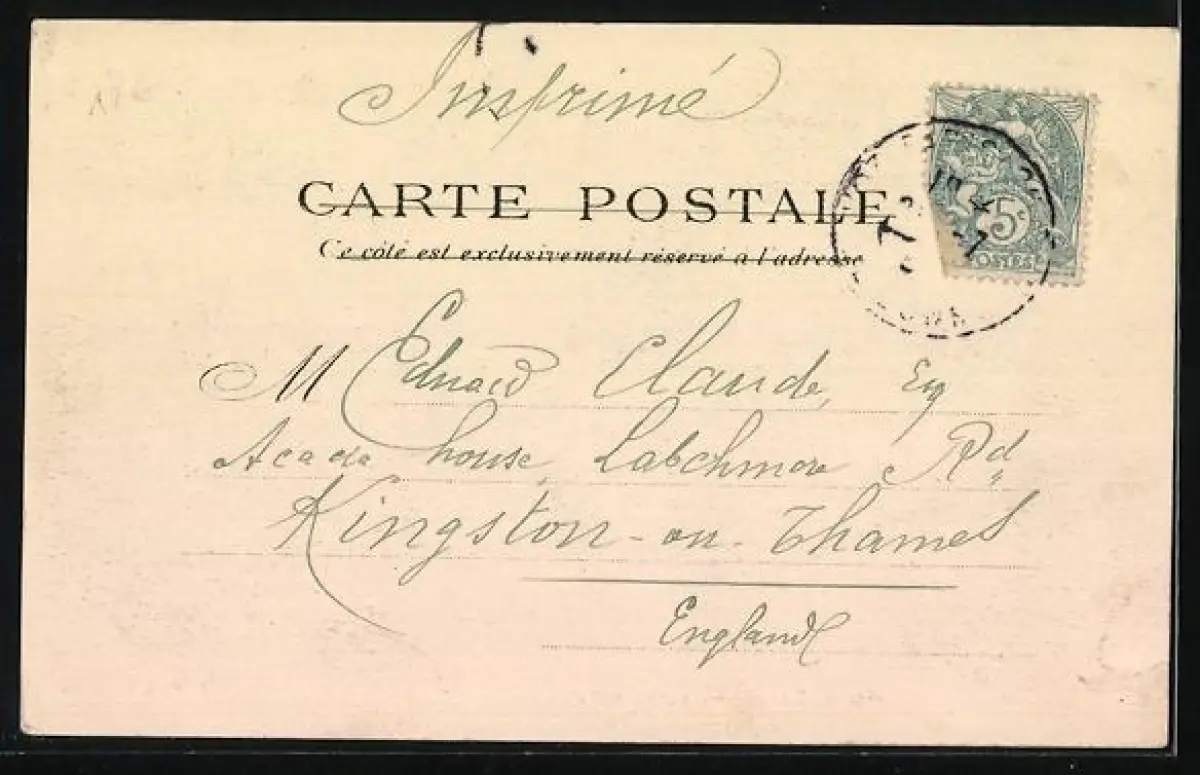 Imprimé
CARTE POSTALE
Ce côté est exclusivement réservé à l'adresse
M Edward Claude, Esq
Acada house, Latchmore Rd
Kingston-on-Thames
England
5c
POSTES